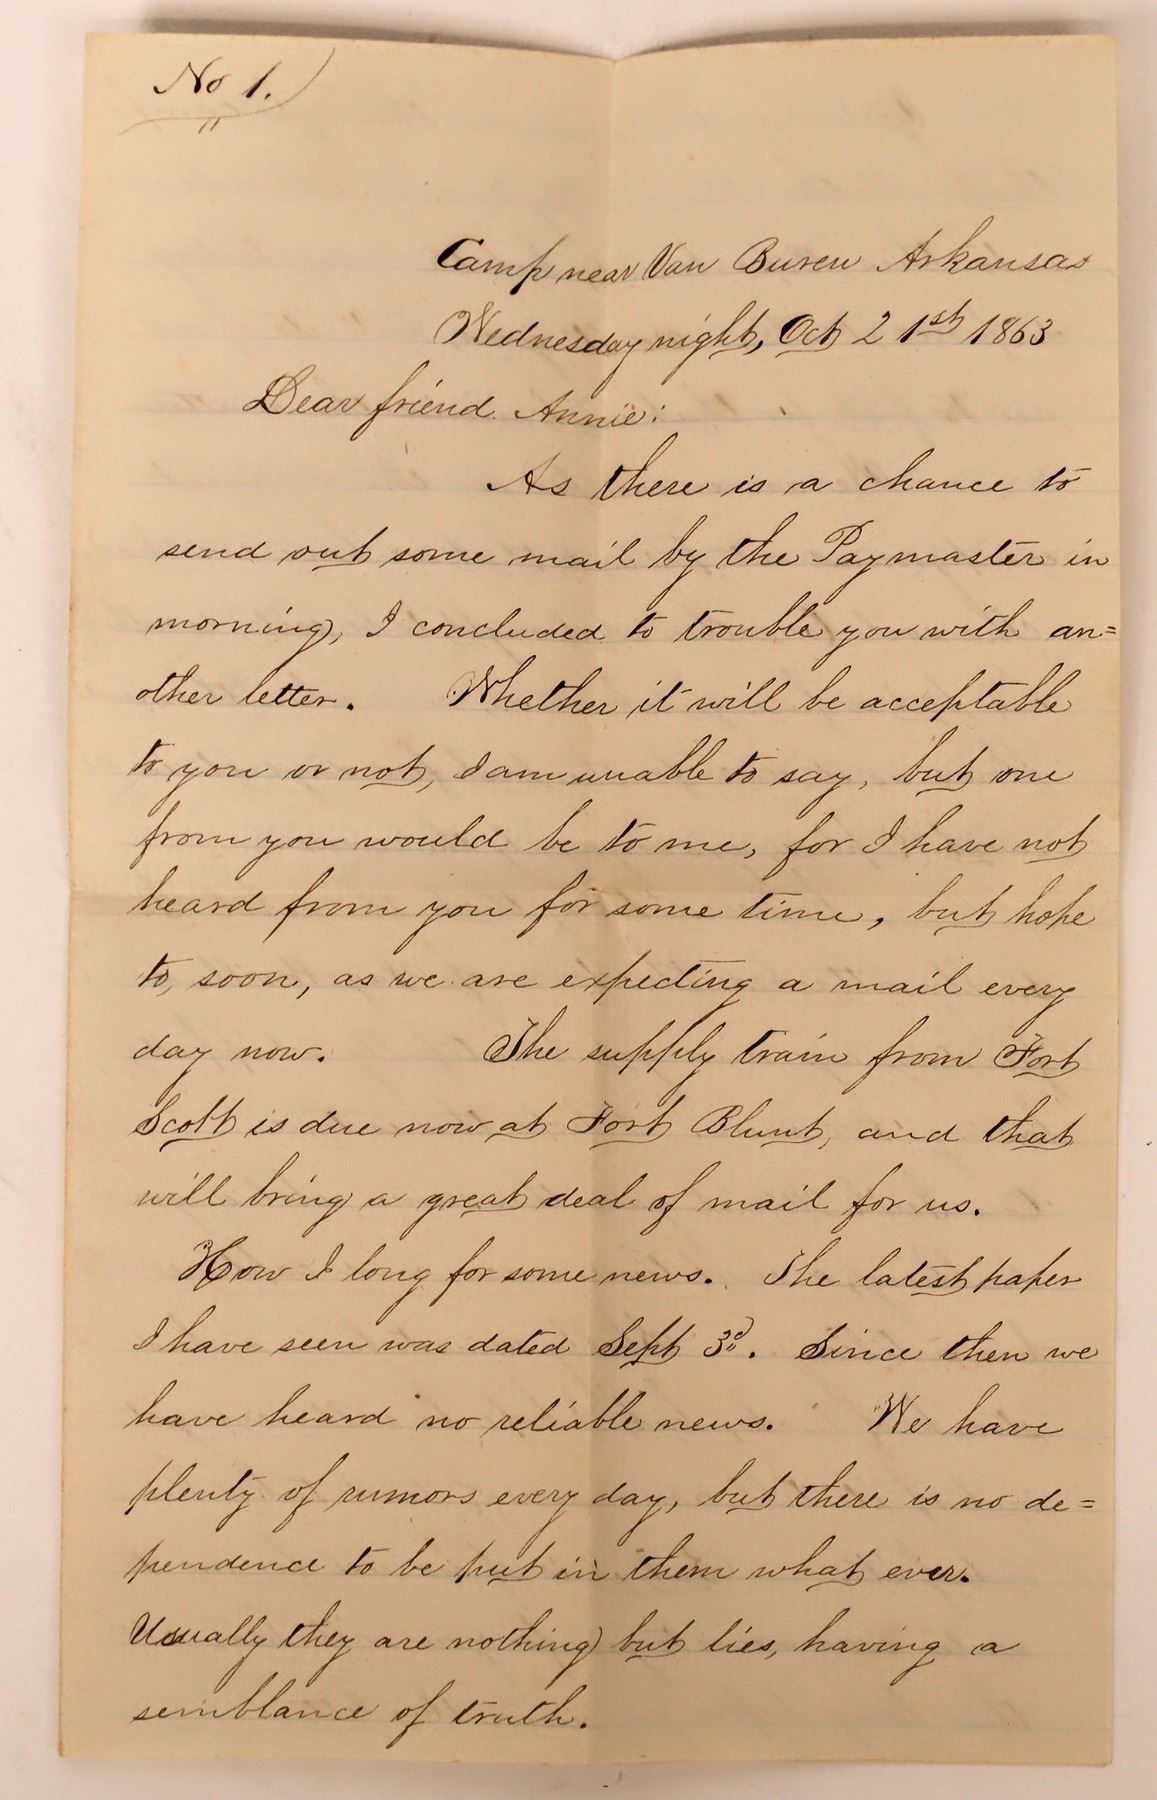 No 1.
Camp near Van Buren Arkansas
Wednesday night, Oct 21st 1863
Dear friend Annie:
As there is a chance to
send out some mail by the Paymaster in
morning, I concluded to trouble you with an=
other letter. Whether it will be acceptable
to you or not, I am unable to say, but one
from you would be to me, for I have not
heard from you for some time, but hope
to, soon, as we are expecting a mail every
day now. The supply train from Fort
Scott is due now at Fort Blunt, and that
will bring a great deal of mail for us.
How I long for some news. The latest paper
I have seen was dated Sept 3d. Since then we
have heard no reliable news. We have
plenty of rumors every day, but there is no de=
pendence to be put in them what ever.
Usually they are nothing but lies, having a
semblance of truth.